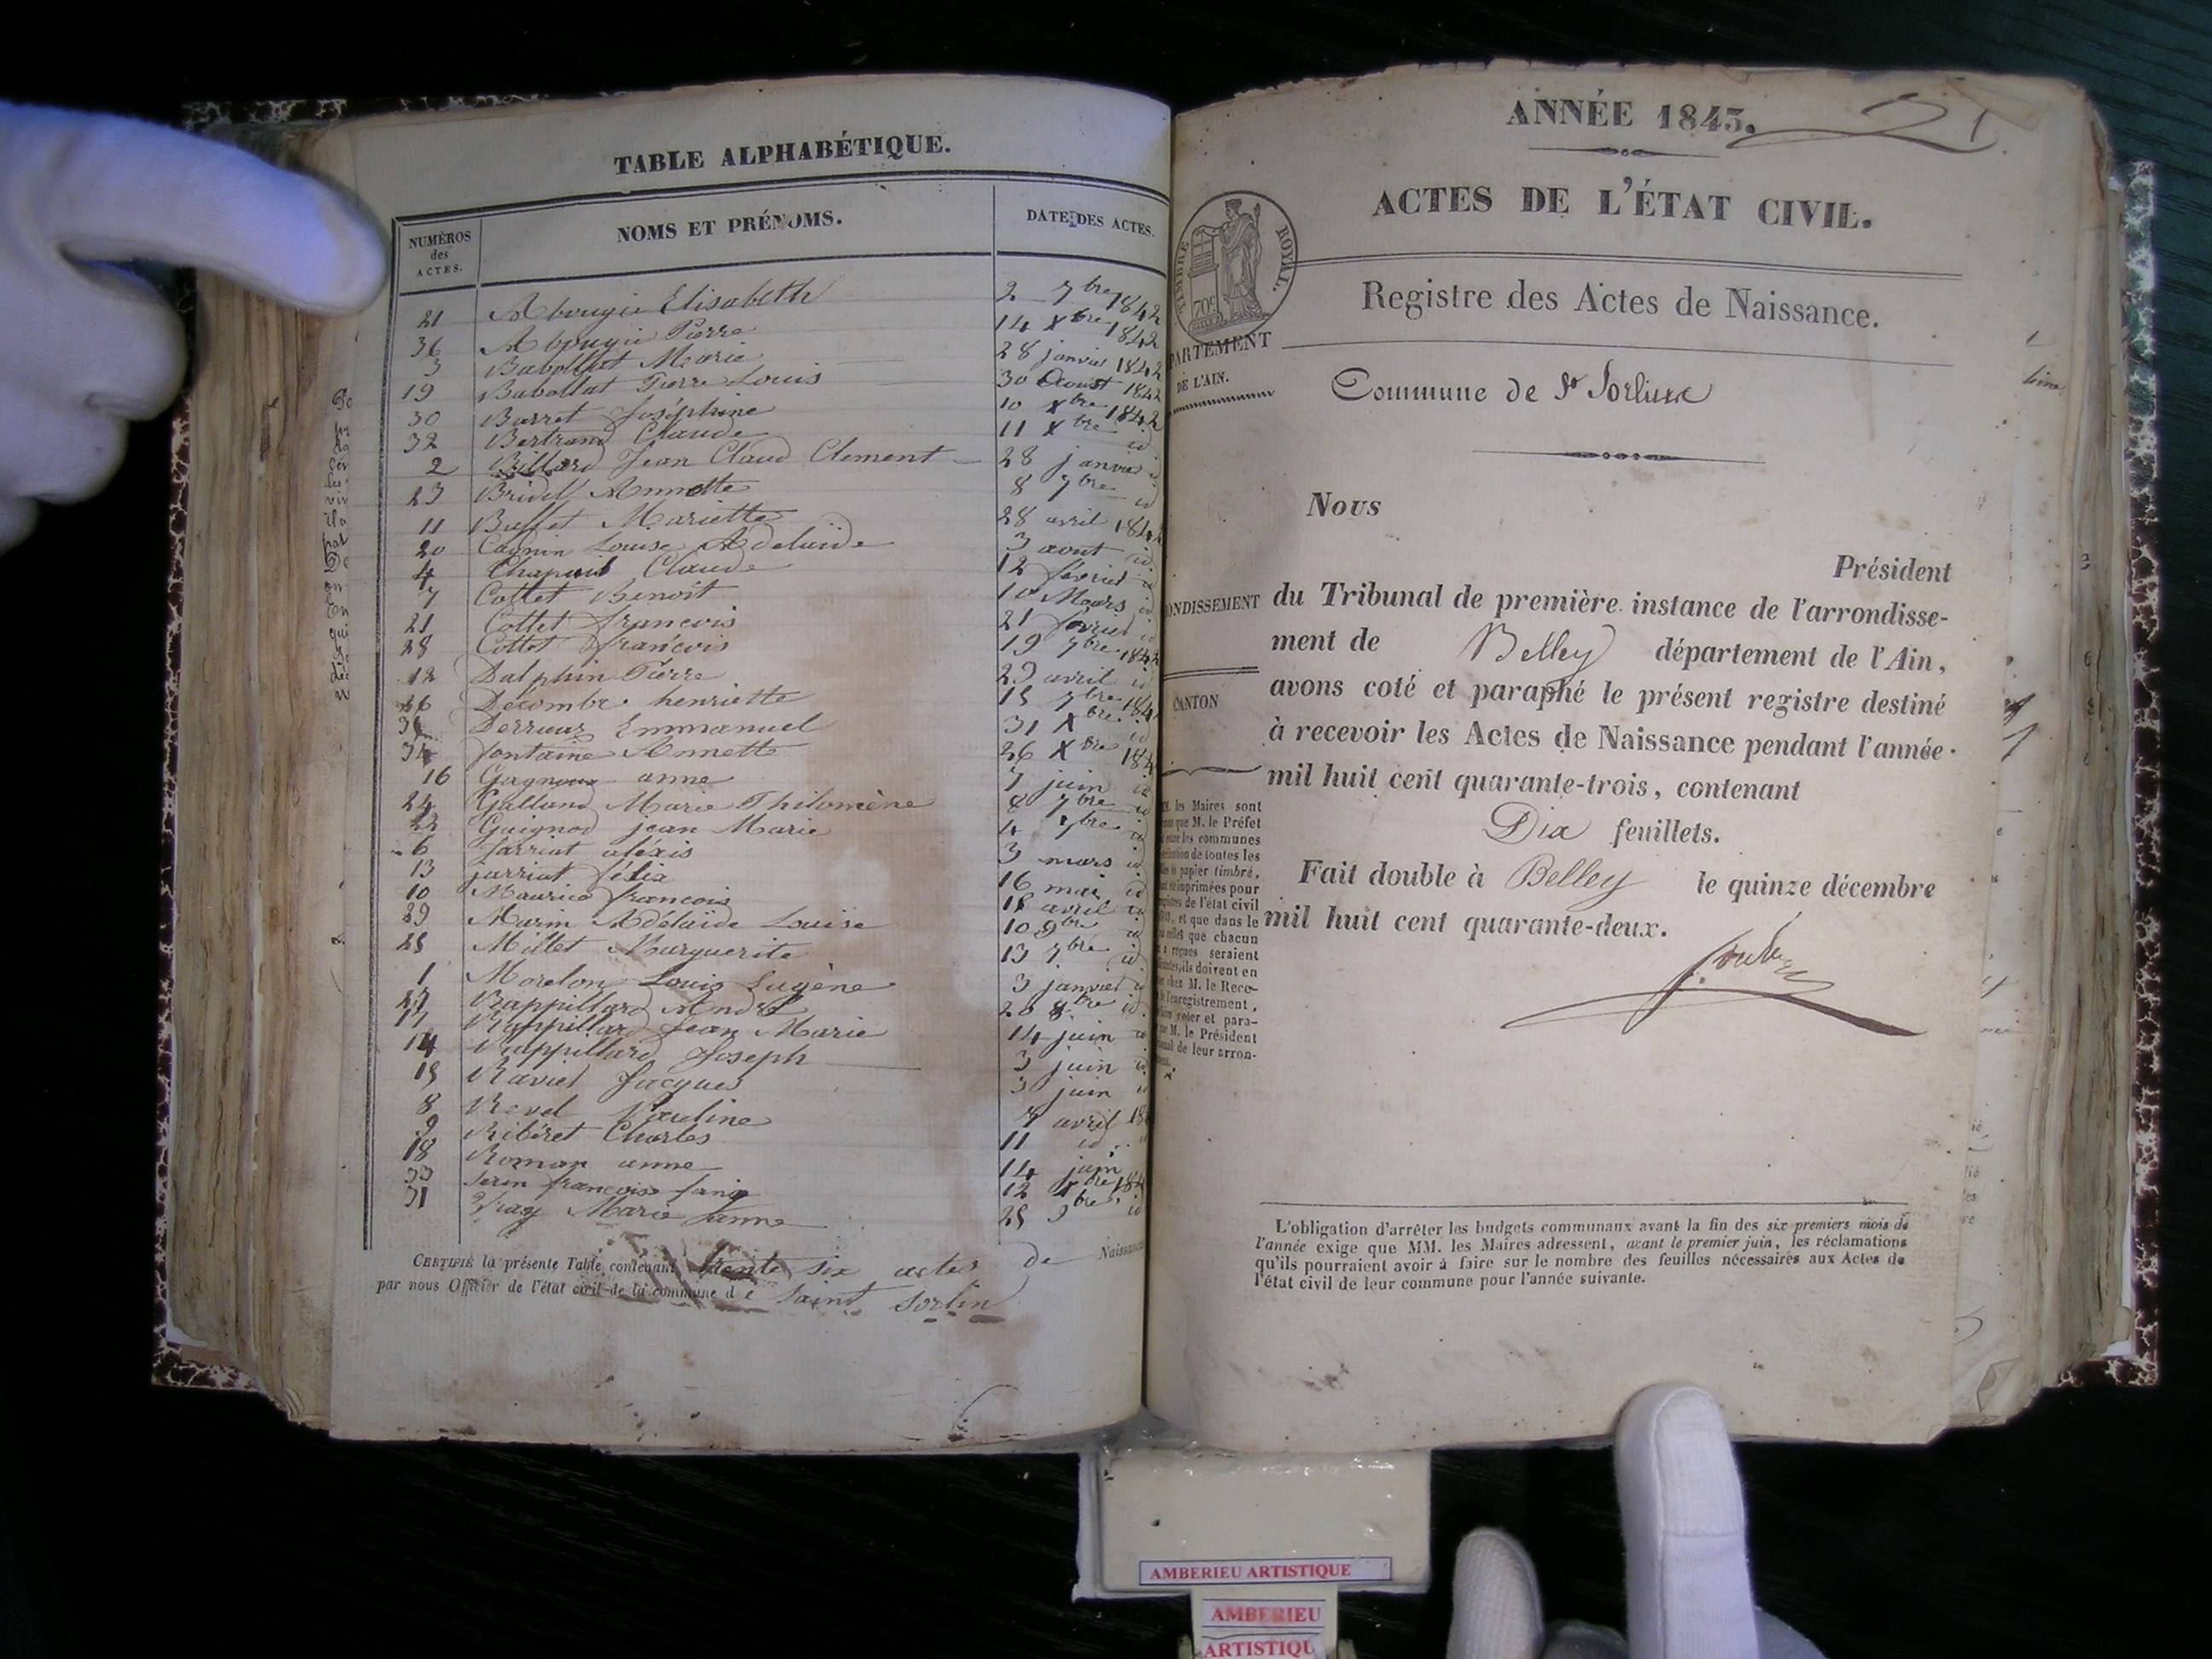 TABLE ALPHABÉTIQUE.
NUMÉROS des ACTES. NOMS ET PRÉNOMS. DATE DES ACTES.
21 Abougie Elisabeth 2 7bre 1842
36 Abougie Pierre 14 Xbre 1842
3 Babollat Marie 28 janvier 1842
19 Babollat Pierre Louis 30 Aoust 1842
30 Barret Joséphine 10 Xbre 1842
32 Bertrand Claude 11 Xbre id
2 Billard Jean Claud Clement 28 janvier
23 Bridel Annette 8 7bre id
11 Buffet Mariette 28 avril 1842
20 Cagnin Louise Adelaïde 3 aout id
4 Chapuis Claude 12 février
7 Collet Benoît 10 Mars id
21 Collet françois 21 fevrier id
28 Collet françois 19 7bre 1842
12 Dalphin Pierre 29 avril id
26 Decombe henriette 15 7bre 184
Derrieux Emmanuel 31 Xbre id
34 fontaine Annette 26 Xbre 184
16 Gagnoux anne 7 juin id
24 Galland Marie Philomène 8 7bre id
22 Guignod jean Marie 4 7bre id
6 Jarriat aléxis 3 mars id
13 jarriat félix 16 mai id
10 Maurice françois 18 avril id
29 Marin Adélaïde Louise 10 9bre id
25 Millet Marguerite 13 7bre id
1 Morelon Louis Eugène 3 janvier
27 Rappillard André 20 8bre id
17 Rappillard Jean Marie 14 juin
14 Rappillard Joseph 3 juin id
15 Raviel Jacques 3 juin
8 Revel Pauline 4 avril 18
9 Ribéret Charles 11 id
18 Roman anne 14 juin
33 Serin françoise fanie 12 Xbre 184
31 Vray Marie anne 25 9bre id
CERTIFIÉ la présente Table contenant trente six actes de Naissance
par nous Officier de l'état civil de la commune de Saint Sorlin
ANNÉE 1843.
ACTES DE L'ÉTAT CIVIL.
TIMBRE ROYAL.
709
Registre des Actes de Naissance.
PARTEMENT
DE L'AIN.
Commune de St Sorlin
Nous
Président
ONDISSEMENT
du Tribunal de première instance de l'arrondisse-
ment de Belley département de l'Ain,
avons coté et paraphé le présent registre destiné
CANTON
à recevoir les Actes de Naissance pendant l'année
mil huit cent quarante-trois, contenant
Dix feuillets.
Fait double à Belley le quinze décembre
mil huit cent quarante-deux.
les Maires sont
que M. le Préfet
les communes
de toutes les
papier timbré,
imprimées pour
de l'état civil
et que dans le
que chacun
reçues seraient
ils doivent en
chez M. le Rece-
l'enregistrement,
coter et para-
M. le Président
de leur arron-
L'obligation d'arrêter les budgets communaux avant la fin des six premiers mois de
l'année exige que MM. les Maires adressent, avant le premier juin, les réclamations
qu'ils pourraient avoir à faire sur le nombre des feuilles nécessaires aux Actes de
l'état civil de leur commune pour l'année suivante.
AMBERIEU ARTISTIQUE
AMBERIEU
ARTISTIQU